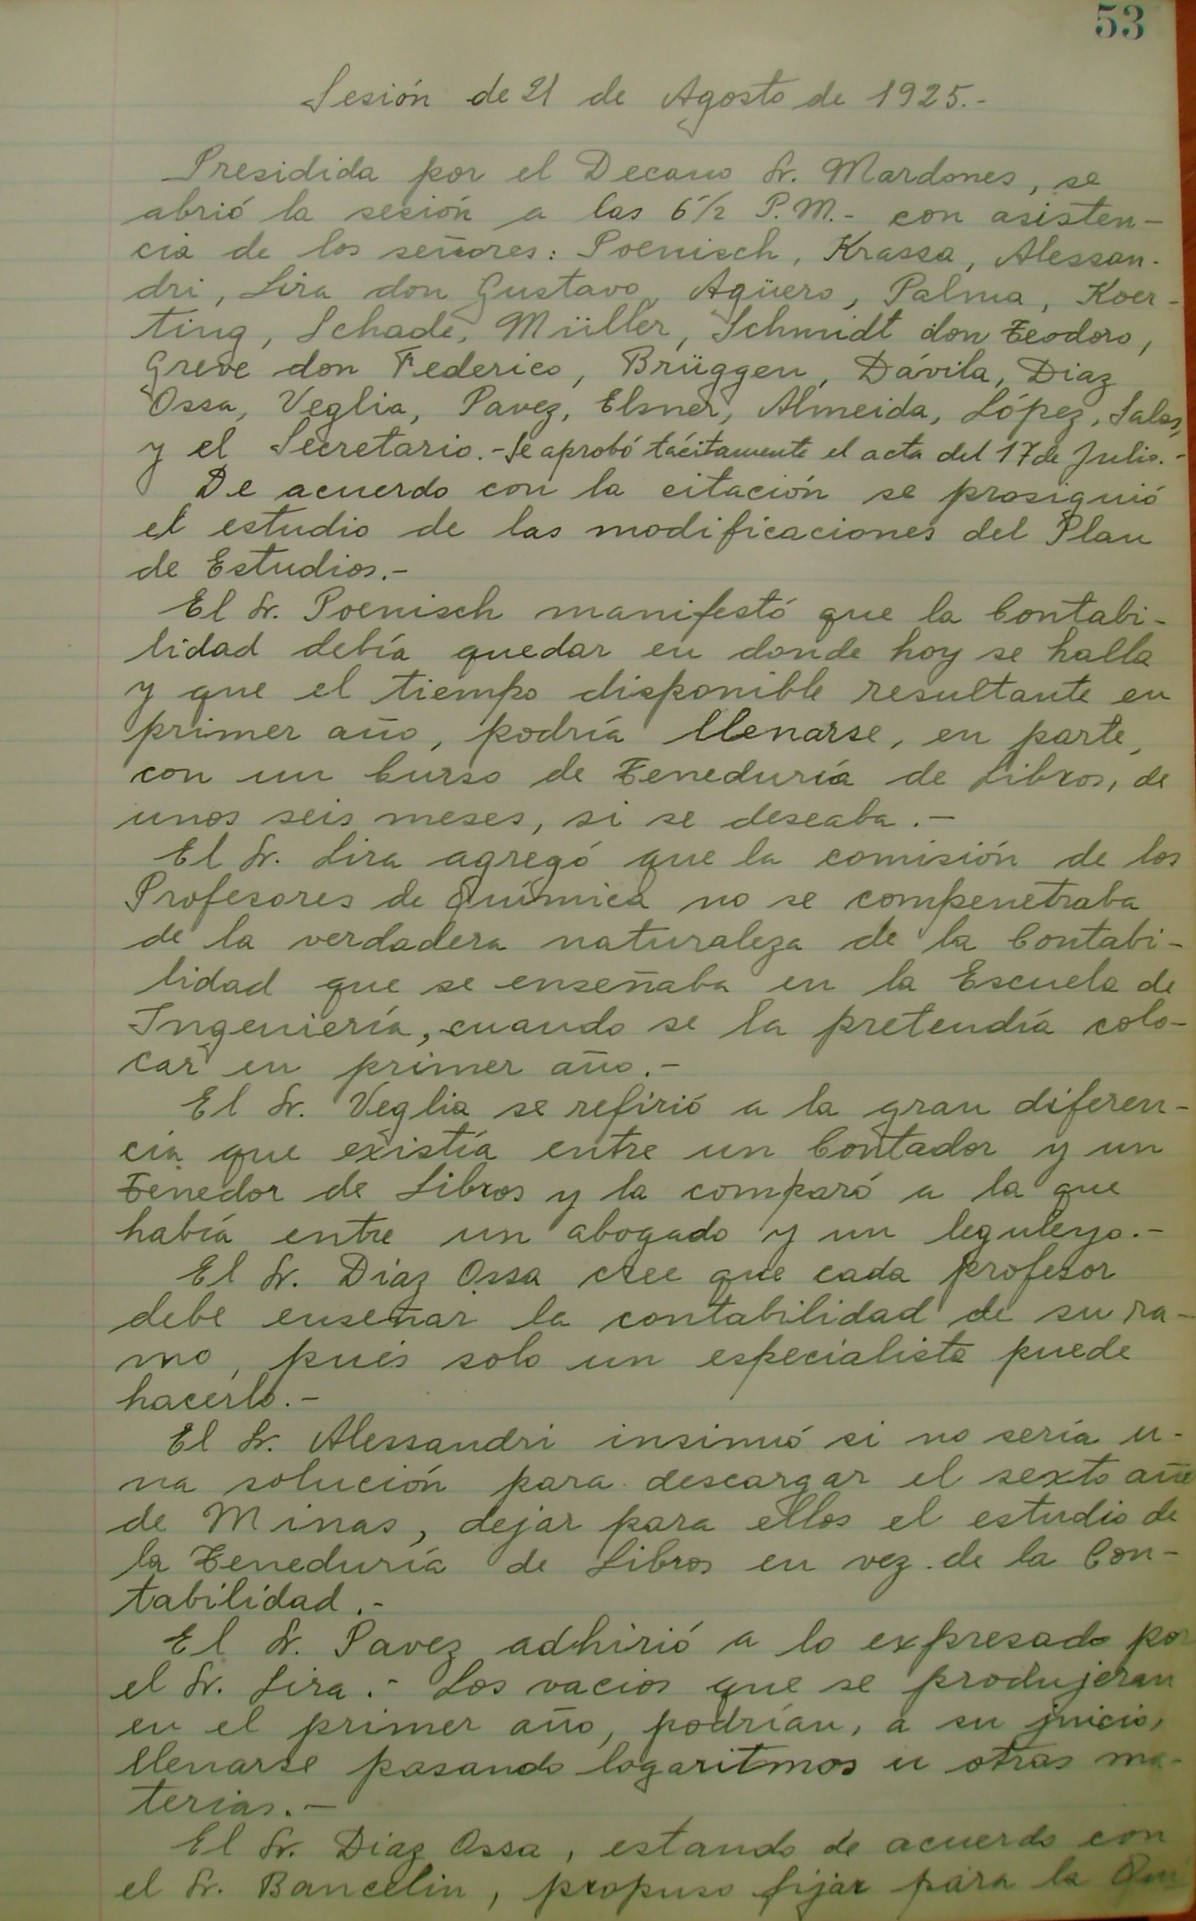 53
Sesión de 21 de Agosto de 1925.-
Presidida por el Decano Sr. Mardones, se
abrió la sesión a las 6 1/2 P.M.- con asisten-
cia de los señores: Poenisch, Krassa, Alessan-
dri, Lira don Gustavo, Agüero, Palma, Koer-
ting, Schade, Müller, Schmidt don Teodoro,
Greve don Federico, Brüggen, Dávila, Diaz
Ossa, Veglia, Pavez, Elsner, Almeida, López, Salas,
y el Secretario.- Se aprobó tácitamente el acta del 17 de Julio.-
De acuerdo con la citación se prosiguió
el estudio de las modificaciones del Plan
de Estudios.-
El Sr. Poenisch manifestó que la Contabi-
lidad debía quedar en donde hoy se halla
y que el tiempo disponible resultante en
primer año, podría llenarse, en parte,
con un Curso de Teneduría de Libros, de
unos seis meses, si se deseaba.-
El Sr. Lira agregó que la comisión de los
Profesores de Química no se compenetraba
de la verdadera naturaleza de la Contabi-
lidad que se enseñaba en la Escuela de
Ingeniería, cuando se la pretendía colo-
car en primer año.-
El Sr. Veglia se refirió a la gran diferen-
cia que existía entre un Contador y un
Tenedor de Libros y la comparó a la que
había entre un abogado y un leguleyo.-
El Sr. Diaz Ossa cree que cada profesor
debe enseñar la contabilidad de su ra-
mo, pues solo un especialista puede
hacerlo.-
El Sr. Alessandri insinuó si no sería u-
na solución para descargar el sexto año
de Minas, dejar para ellos el estudio de
la Teneduría de Libros en vez de la Con-
tabilidad.-
El Sr. Pavez adhirió a lo expresado por
el Sr. Lira.- Los vacios que se produjeran
en el primer año, podrían, a su juicio,
llenarse pasando logaritmos u otras ma-
terias.-
El Sr. Diaz Ossa, estando de acuerdo con
el Sr. Bancelin, propuso fijar para la Quí